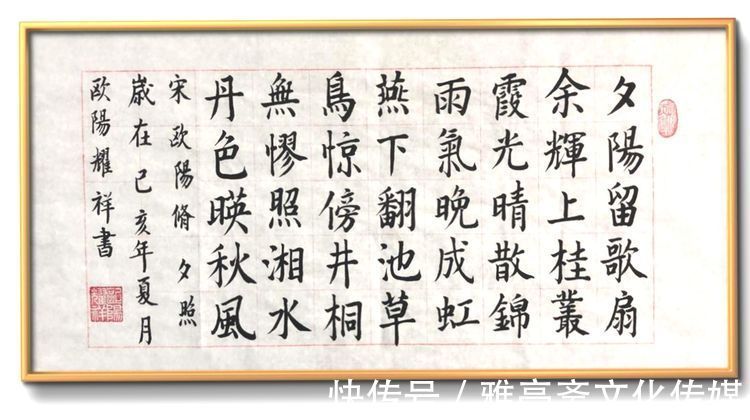 夕陽留歌扇
余輝上桂叢
霞光晴散錦
雨氣晚成虹
燕下翻池草
鳥惊傍井桐
無憀照湘水
丹色暎秋風
宋欧陽脩夕照
歲在己亥年夏月
欧陽耀祥書
快传号/雅亭斋文化传媒